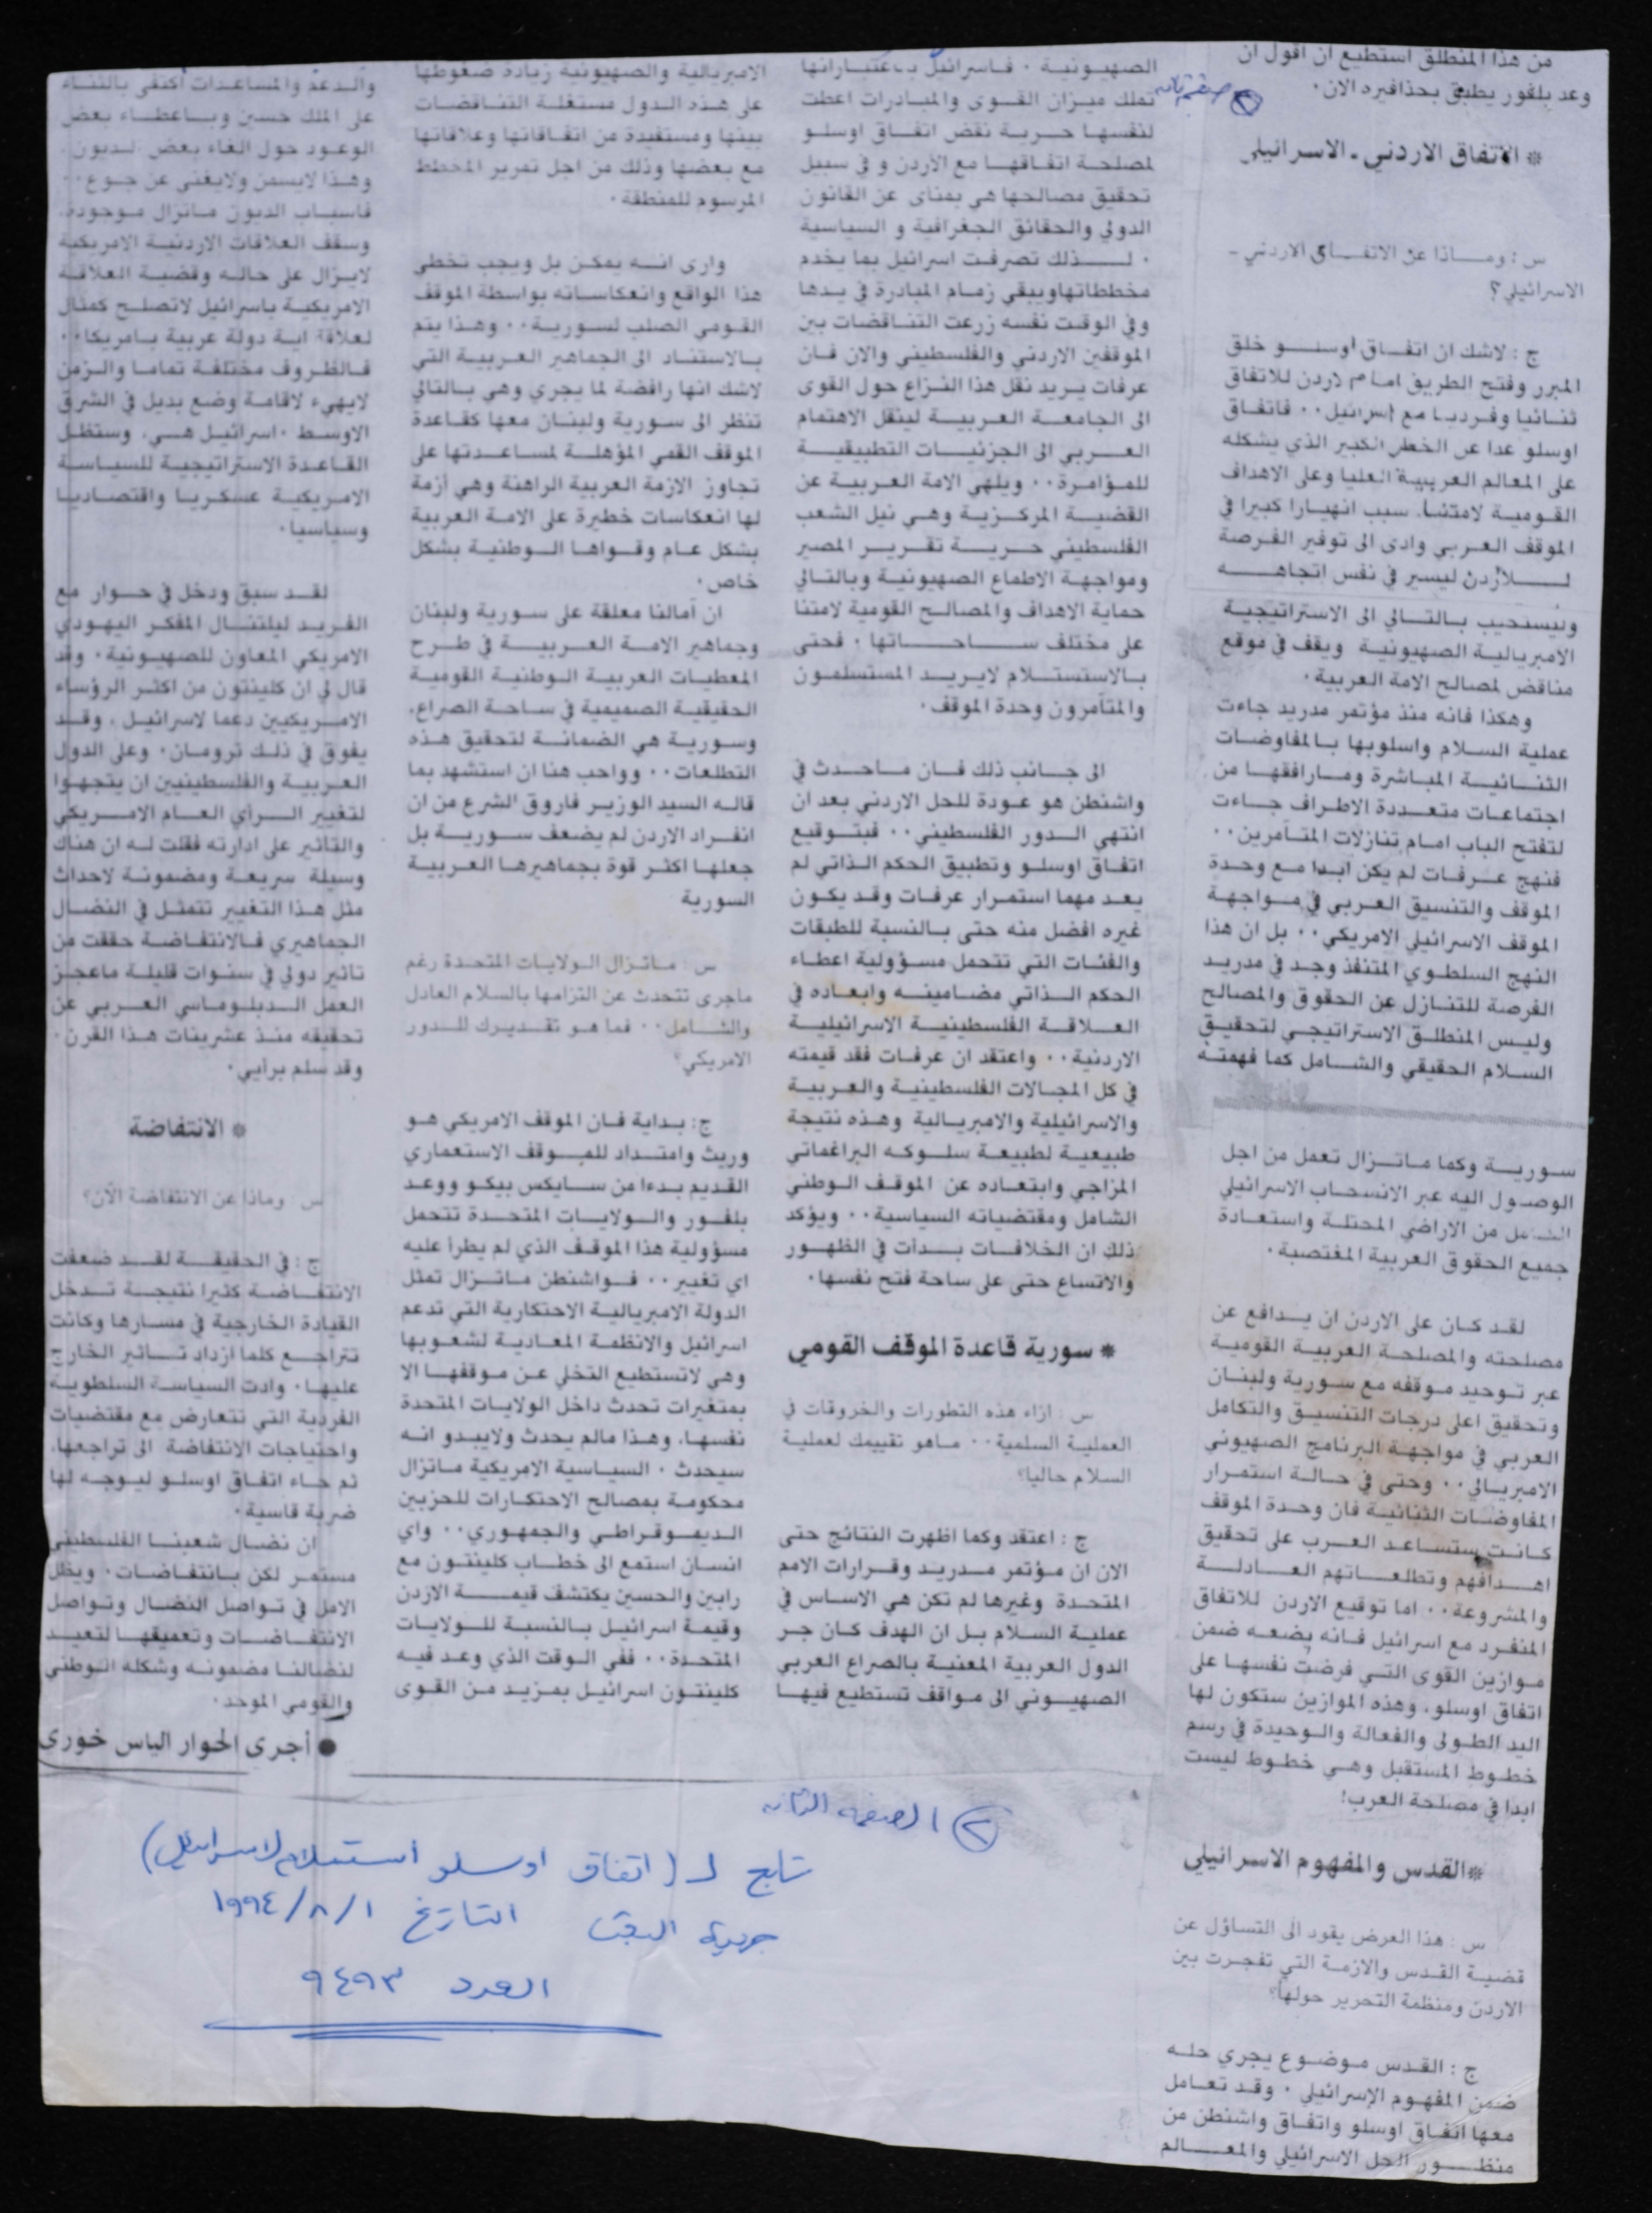 من هذا المنطلق استطيع ان اقول ان
وعد بلفور يطبق بحذافيره الان.
* الاتفاق الاردني - الاسرائيلي
س : وماذا عن الاتفاق الاردني -
الاسرائيلي؟
ج : لاشك ان اتفاق اوسلو خلق
المبرر وفتح الطريق امام لاردن للاتفاق
ثنائيا وفرديا مع إسرائيل .. فاتفاق
اوسلو عدا عن الخطر الكبير الذي يشكله
على المعالم العربية العليا وعلى الاهداف
القومية لامتنا، سبب انهيارا كبيرا في
الموقف العربي وادى الى توفير الفرصة
للاردن ليسير في نفس اتجاهه
وليستجيب بالتالي الى الاستراتيجية
الامبريالية الصهيونية ويقف في موقع
مناقض لمصالح الامة العربية.
وهكذا فانه منذ مؤتمر مدريد جاءت
عملية السلام واسلوبها بالمفاوضات
الثنائية المباشرة ومارافقها من
اجتماعات متعددة الاطراف جاءت
لتفتح الباب امام تنازلات المتآمرين ..
فنهج عرفات لم يكن ابدا مع وحدة
الموقف والتنسيق العربي في مواجهة
الموقف الاسرائيلي الامريكي .. بل ان هذا
النهج السلطوي المتنفذ وجد في مدريد
الفرصة للتنازل عن الحقوق والمصالح
وليس المنطلق الاستراتيجي لتحقيق
السلام الحقيقي والشامل كما فهمته
سورية وكما ماتزال تعمل من اجل
الوصول اليه عبر الانسحاب الاسرائيلي
الشامل من الاراضي المحتلة واستعادة
جميع الحقوق العربية المغتصبة.
لقد كان على الاردن ان يدافع عن
مصلحته والمصلحة العربية القومية
عبر توحيد موقفه مع سورية ولبنان
وتحقيق اعلى درجات التنسيق والتكامل
العربي في مواجهة البرنامج الصهيوني
الامبريالي .. وحتى في حالة استمرار
المفاوضات الثنائية فان وحدة الموقف
كانت ستساعد العرب على تحقيق
اهدافهم وتطلعاتهم العادلة
والمشروعة .. اما توقيع الاردن للاتفاق
المنفرد مع اسرائيل فانه يضعه ضمن
موازين القوى التي فرضت نفسها على
اتفاق اوسلو، وهذه الموازين ستكون لها
اليد الطولى والفعالة والوحيدة في رسم
خطوط المستقبل وهي خطوط ليست
ابدا في مصلحة العرب!
*القدس والمفهوم الاسرائيلي
س : هذا العرض يقود الى التساؤل عن
قضية القدس والازمة التي تفجرت بين
الاردن ومنظمة التحرير حولها؟
ج : القدس موضوع يجري حله
ضمن المفهوم الإسرائيلي . وقد تعامل
معها اتفاق اوسلو واتفاق واشنطن من
منظور الحل الاسرائيلي والمعالم
الصهيونية . فاسرائيل باعتباراتها
تملك ميزان القوى والمبادرات اعطت
لنفسها حرية نقض اتفاق اوسلو
لمصلحة اتفاقها مع الأردن و في سبيل
تحقيق مصالحها هي بمنأى عن القانون
الدولي والحقائق الجغرافية و السياسية
. لذلك تصرفت اسرائيل بما يخدم
مخططاتها ويبقي زمام المبادرة في يدها
وفي الوقت نفسه زرعت التناقضات بين
الموقفين الاردني والفلسطيني والان فان
عرفات يريد نقل هذا النزاع حول القوى
الى الجامعة العربية لينقل الاهتمام
العربي الى الجزئيات التطبيقية
للمؤامرة .. ويلهي الامة العربية عن
القضية المركزية وهي نيل الشعب
الفلسطيني حرية تقرير المصير
ومواجهة الاطماع الصهيونية وبالتالي
حماية الاهداف والمصالح القومية لامتنا
على مختلف ساحاتها . فحتى
بالاستسلام لايريد المستسلمون
والمتآمرون وحدة الموقف.
الى جانب ذلك فان ماحدث في
واشنطن هو عودة للحل الاردني بعد ان
انتهى الدور الفلسطيني .. فبتوقيع
اتفاق اوسلو وتطبيق الحكم الذاتي لم
يعد مهما استمرار عرفات وقد يكون
غيره افضل منه حتى بالنسبة للطبقات
والفئات التي تتحمل مسؤولية اعطاء
الحكم الذاتي مضامينه وابعاده في
العلاقة الفلسطينية الاسرائيلية
الاردنية .. واعتقد ان عرفات فقد قيمته
في كل المجالات الفلسطينية والعربية
والاسرائيلية والامبريالية وهذه نتيجة
طبيعية لطبيعة سلوكه البراغماتي
المزاجي وابتعاده عن الموقف الوطني
الشامل ومقتضياته السياسية .. ويؤكد
ذلك ان الخلافات بدأت في الظهور
والاتساع حتى على ساحة فتح نفسها.
* سورية قاعدة الموقف القومي
س : ازاء هذه التطورات والخروقات في
العملية السلمية .. ماهو تقييمك لعملية
السلام حاليا؟
ج : اعتقد وكما اظهرت النتائج حتى
الان ان مؤتمر مدريد وقرارات الامم
المتحدة وغيرها لم تكن هي الاساس في
عملية السلام بل ان الهدف كان جر
الدول العربية المعنية بالصراع العربي
الصهيوني الى مواقف تستطيع فيها
الامبريالية والصهيونية زيادة ضغوطها
على هذه الدول مستغلة التناقضات
بينها ومستفيدة من اتفاقاتها وعلاقاتها
مع بعضها وذلك من اجل تمرير المخطط
المرسوم للمنطقة.
وارى انه يمكن بل ويجب تخطي
هذا الواقع وانعكاساته بواسطة الموقف
القومي الصلب لسورية .. وهذا يتم
بالاستناد الى الجماهير العربية التي
لاشك انها رافضة لما يجري وهي بالتالي
تنظر الى سورية ولبنان معها كقاعدة
الموقف القمي المؤهلة لمساعدتها على
تجاوز الازمة العربية الراهنة وهي أزمة
لها انعكاسات خطيرة على الامة العربية
بشكل عام وقواها الوطنية بشكل
خاص.
ان آمالنا معلقة على سورية ولبنان
وجماهير الامة العربية في طرح
المعطيات العربية الوطنية القومية
الحقيقية الصميمية في ساحة الصراع.
وسورية هي الضمانة لتحقيق هذه
التطلعات .. وواجب هنا ان استشهد بما
قاله السيد الوزير فاروق الشرع من ان
انفراد الاردن لم يضعف سورية بل
جعلها اكثر قوة بجماهيرها العربية
السورية
س : ماتزال الولايات المتحدة رغم
ماجرى تتحدث عن التزامها بالسلام العادل
والشامل .. فما هو تقديرك للدور
الامريكي؟
ج: بداية فان الموقف الامريكي هو
وريث وامتداد للموقف الاستعماري
القديم بدءا من سايكس بيكو ووعد
بلفور والولايات المتحدة تتحمل
مسؤولية هذا الموقف الذي لم يطرأ عليه
اي تغيير .. فواشنطن ماتزال تمثل
الدولة الامبريالية الاحتكارية التي تدعم
اسرائيل والانظمة المعادية لشعوبها
وهي لاتستطيع التخلي عن موقفها الا
بمتغيرات تحدث داخل الولايات المتحدة
نفسها، وهذا مالم يحدث ولايبدو انه
سيحدث . السياسية الامريكية ماتزال
محكومة بمصالح الاحتكارات للحزبين
الديموقراطي والجمهوري .. واي
انسان استمع الى خطاب كلينتون مع
رابين والحسين يكتشف قيمة الاردن
وقيمة اسرائيل بالنسبة للولايات
المتحدة .. ففي الوقت الذي وعد فيه
كلينتون اسرائيل بمزيد من القوى
والدعم والمساعدات اكتفى بالثناء
على الملك حسين وباعطاء بعض
الوعود حول الغاء بعض الديون.
وهذا لايسمن ولايغني عن جوع ..
فاسباب الديون ماتزال موجودة.
وسقف العلاقات الاردنية الامريكية
لايزال على حاله وقضية العلاقة
الامريكية باسرائيل لاتصلح كمثال
لعلاقة اية دولة عربية بامريكا ..
فالظروف مختلفة تماما والزمن
لايهيء لاقامة وضع بديل في الشرق
الاوسط . اسرائيل هي، وستظل
القاعدة الاستراتيجية للسياسة
الامريكية عسكريا واقتصاديا
وسياسيا.
لقد سبق ودخل في حوار مع
الفريد ليلتنال المفكر اليهودي
الامريكي المعاون للصهيونية . وقد
قال لي ان كلينتون من اكثر الرؤساء
الامريكيين دعما لاسرائيل ، وقد
يفوق في ذلك ترومان . وعلى الدول
العربية والفلسطينيين ان يتجهوا
لتغيير الرأي العام الامريكي
والتاثير على ادارته فقلت له ان هناك
وسيلة سريعة ومضمونة لاحداث
مثل هذا التغيير تتمثل في النضال
الجماهيري فالانتفاضة حققت من
تاثير دولي في سنوات قليلة ماعجز
العمل الدبلوماسي العربي عن
تحقيقه منذ عشرينات هذا القرن.
وقد سلم برأيي.
* الانتفاضة
س وماذا عن الانتفاضة الآن؟
ج : في الحقيقة لقد ضعفت
الانتفاضة كثيرا نتيجة تدخل
القيادة الخارجية في مسارها وكانت
تتراجع كلما ازداد تاثير الخارج
عليها . وادت السياسة السلطوية
الفردية التي تتعارض مع مقتضيات
واحتياجات الانتفاضة الى تراجعها.
ثم جاء اتفاق اوسلو ليوجه لها
ضربة قاسية.
ان نضال شعبنا الفلسطيني
مستمر لكن بانتفاضات . ويظل
الامل في تواصل النضال وتواصل
الانتفاضات وتعميقها لتعيد
لنضالنا مضمونه وشكله الوطني
والقومي الموحد.
● أجرى الحوار الياس خوري
٢ الصفحة الثانية
تابع لـ ( اتفاق اوسلو استسلام لاسرائيل )
جريدة البعث التاريخ ١/٨/١٩٩٤
العدد ٩٤٩٣